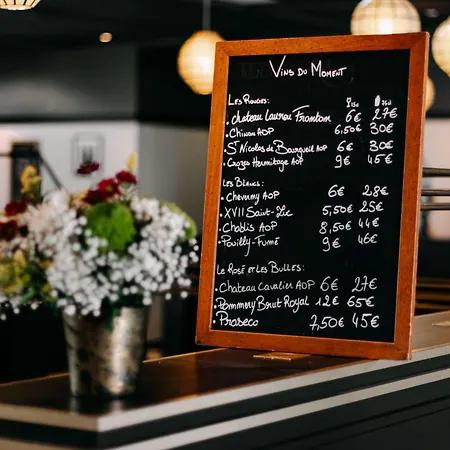 Vins du Moment
Les Rouges: 15cl 75cl
• Chateau Laurou Fronton 6€ 27€
• Chinon AOP 6,50€ 30€
• St Nicolas de Bourgueil AOP 6€ 30€
• Crozes Hermitage AOP 9€ 45€
Les Blancs:
• Cheverny AOP 6€ 28€
• XVII Saint-Luc 5,50€ 25€
• Chablis AOP 8,50€ 44€
• Pouilly-Fumé 9€ 46€
Le Rosé et Les Bulles:
• Chateau Cavalier AOP 6€ 27€
• Pommery Brut Royal 12€ 65€
• Proseco 7,50€ 45€